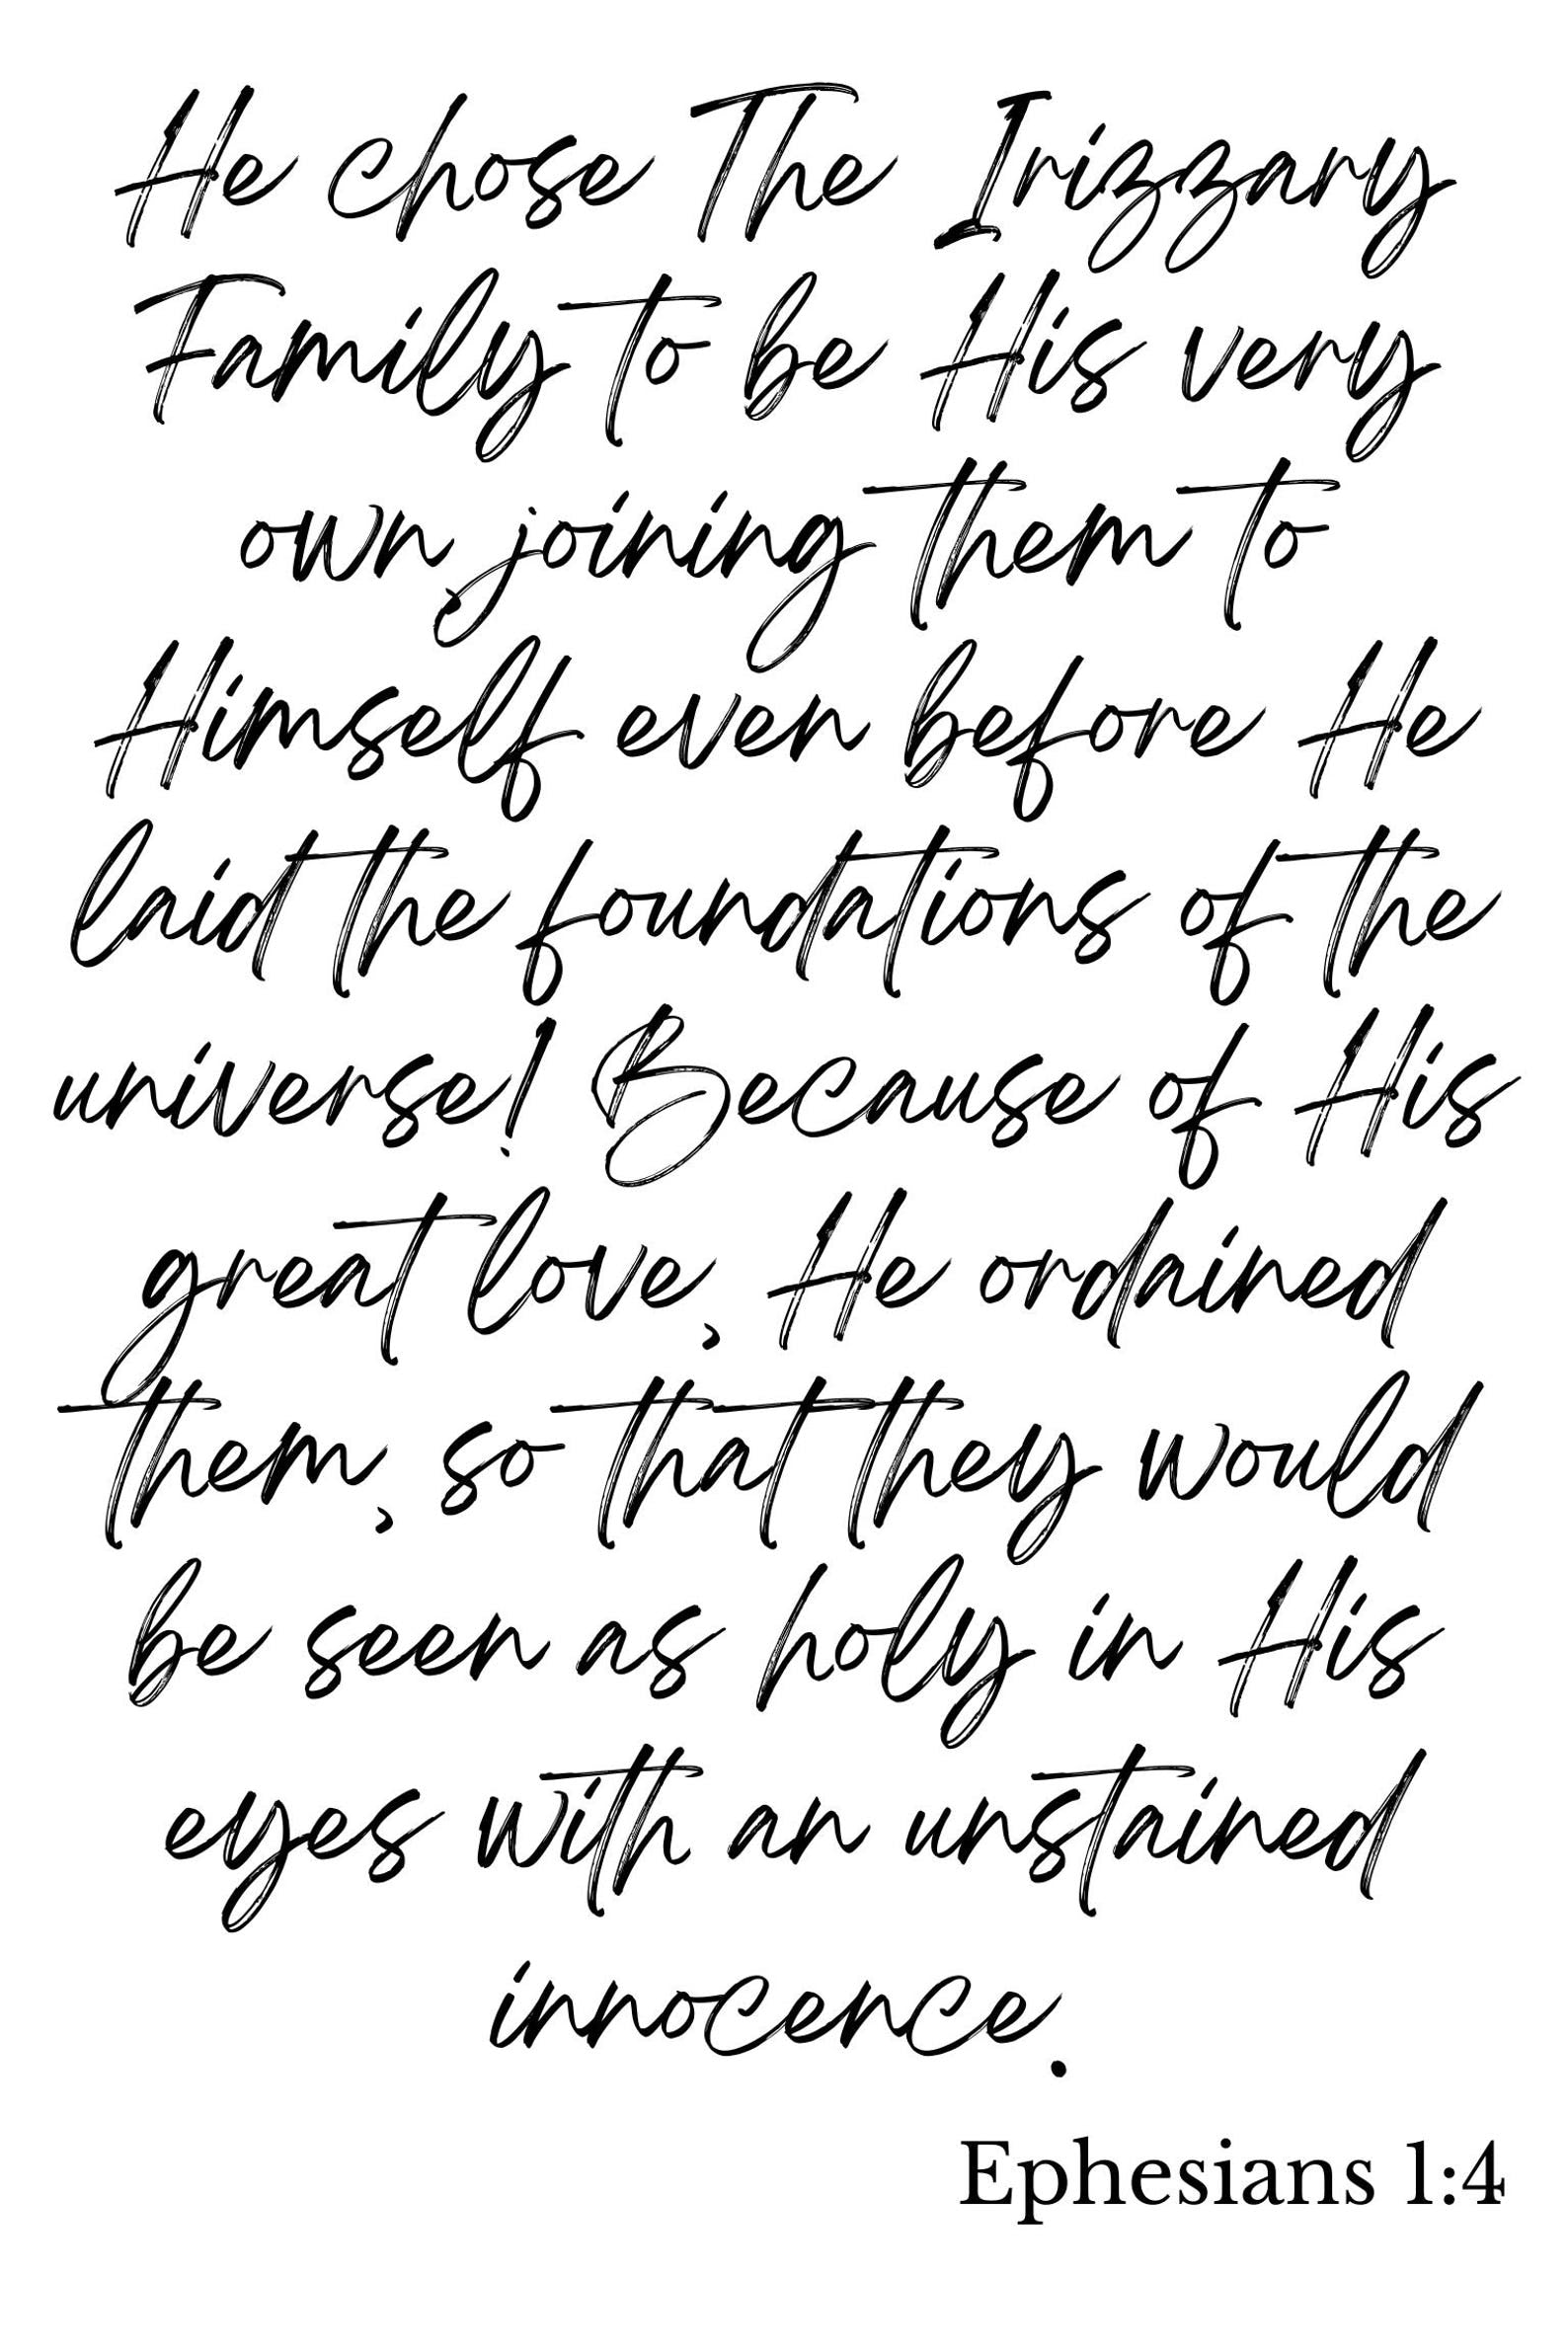 He chose The Irizzary
Family to be His very
own, joining them to
Himself even before He
laid the foundations of the
universe! Because of His
great love, He ordained
them, so that they would
be seen as holy in His
eyes with an unstained
innocence.
Ephesians 1:4